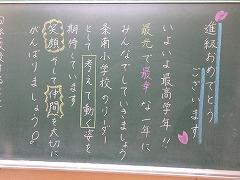 進級おめでとう
ございます
いよいよ最高学年!!
最光で最幸な一年に
みんなでしていきましょう
条南小学校のリーダー
として考えて動く姿を
期待しています
笑顔そして仲間を大切に
がんばりましょう